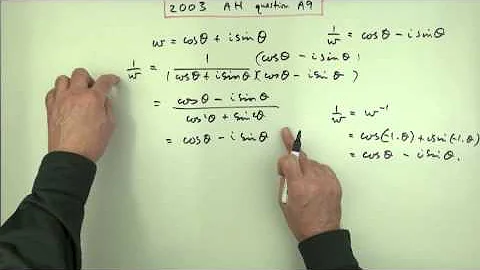 2003 AH question A9
w = cosθ + i sinθ
1/w = cosθ - i sinθ
1/w = 1 (cosθ - i sinθ) / (cosθ + i sinθ)(cosθ - i sinθ)
= cosθ - i sinθ / cos²θ + sin²θ
= cosθ - i sinθ
1/w = w⁻¹
= cos(-1.θ) + i sin(-1.θ)
= cosθ - i sinθ.